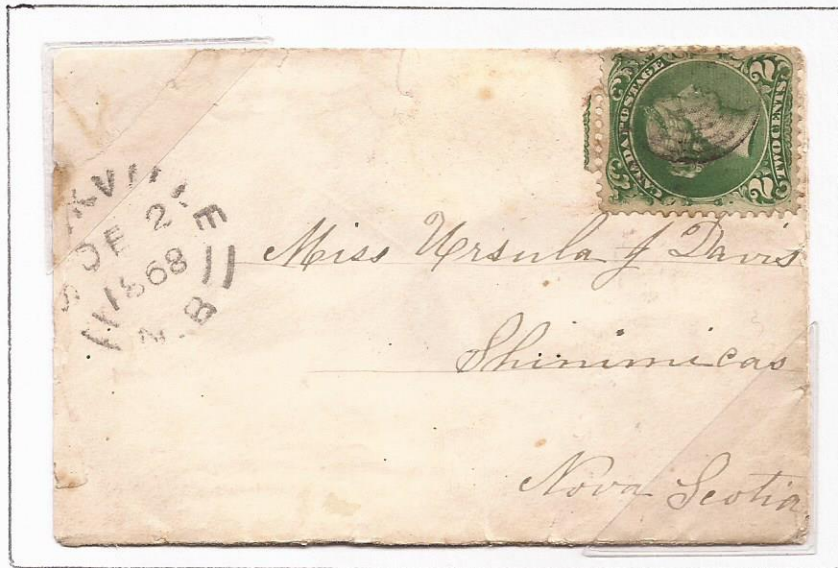 CANADA POSTAGE
2 TWO CENTS 2
KVILLE
DE 2
1868
N.B
Miss Ursula J Davis
Shinimicas
Nova Scotia